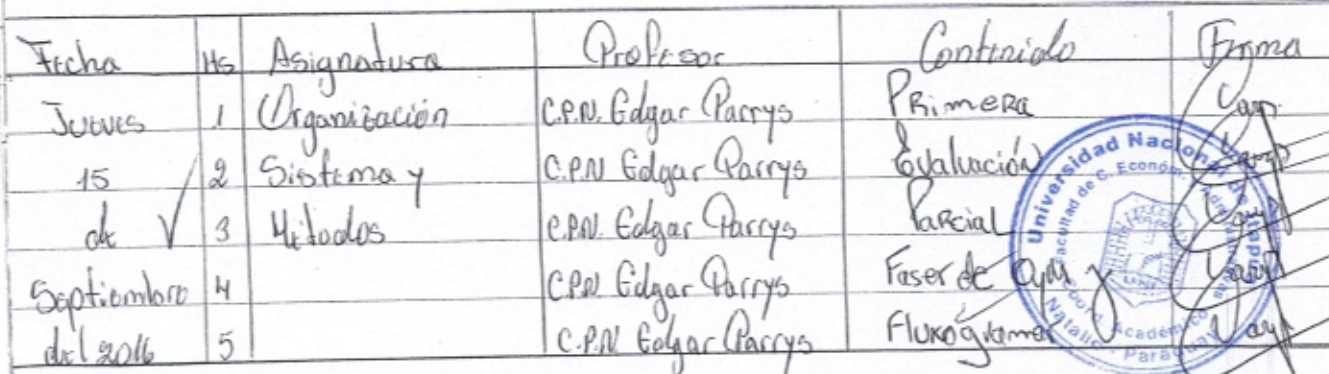 Fecha Hs Asignatura Profesor Contenido Firma
Jueves 1 Organización C.P.N. Edgar Parrys PRimeRa
15 2 Sistema y C.P.N Edgar Parrys Evaluación
de 3 Métodos C.P.N. Edgar Parrys PaRcial
Septiembre 4 C.P.N. Edgar Parrys Faser de OyM y
del 2016 5 C.P.N. Edgar Parrys Fluxogramas
Universidad Nacional de Itapúa
Facultad de C. Económ
Coord. Académico
Natalio - Paraguay